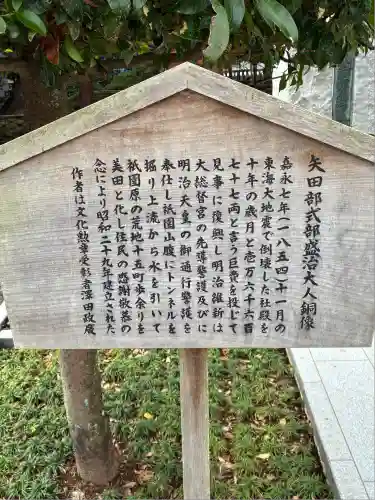 矢田部式部盛治大人銅像
嘉永七年(一八五四)十一月の
東海大地震で倒壊した社殿を
十年の歳月と壱万六千六百
七十七両と言う巨費を投じて
見事に復興し明治維新は
大総督宮の先導警護及びに
明治天皇の御通行警護を
奉仕し祇園山腹にトンネルを
掘り上流から水を引いて
祇園原の荒地十五町歩余りを
美田と化し住民の感謝敬慕の
念により昭和二十九年建立された
作者は文化勲章受彰者澤田政廣